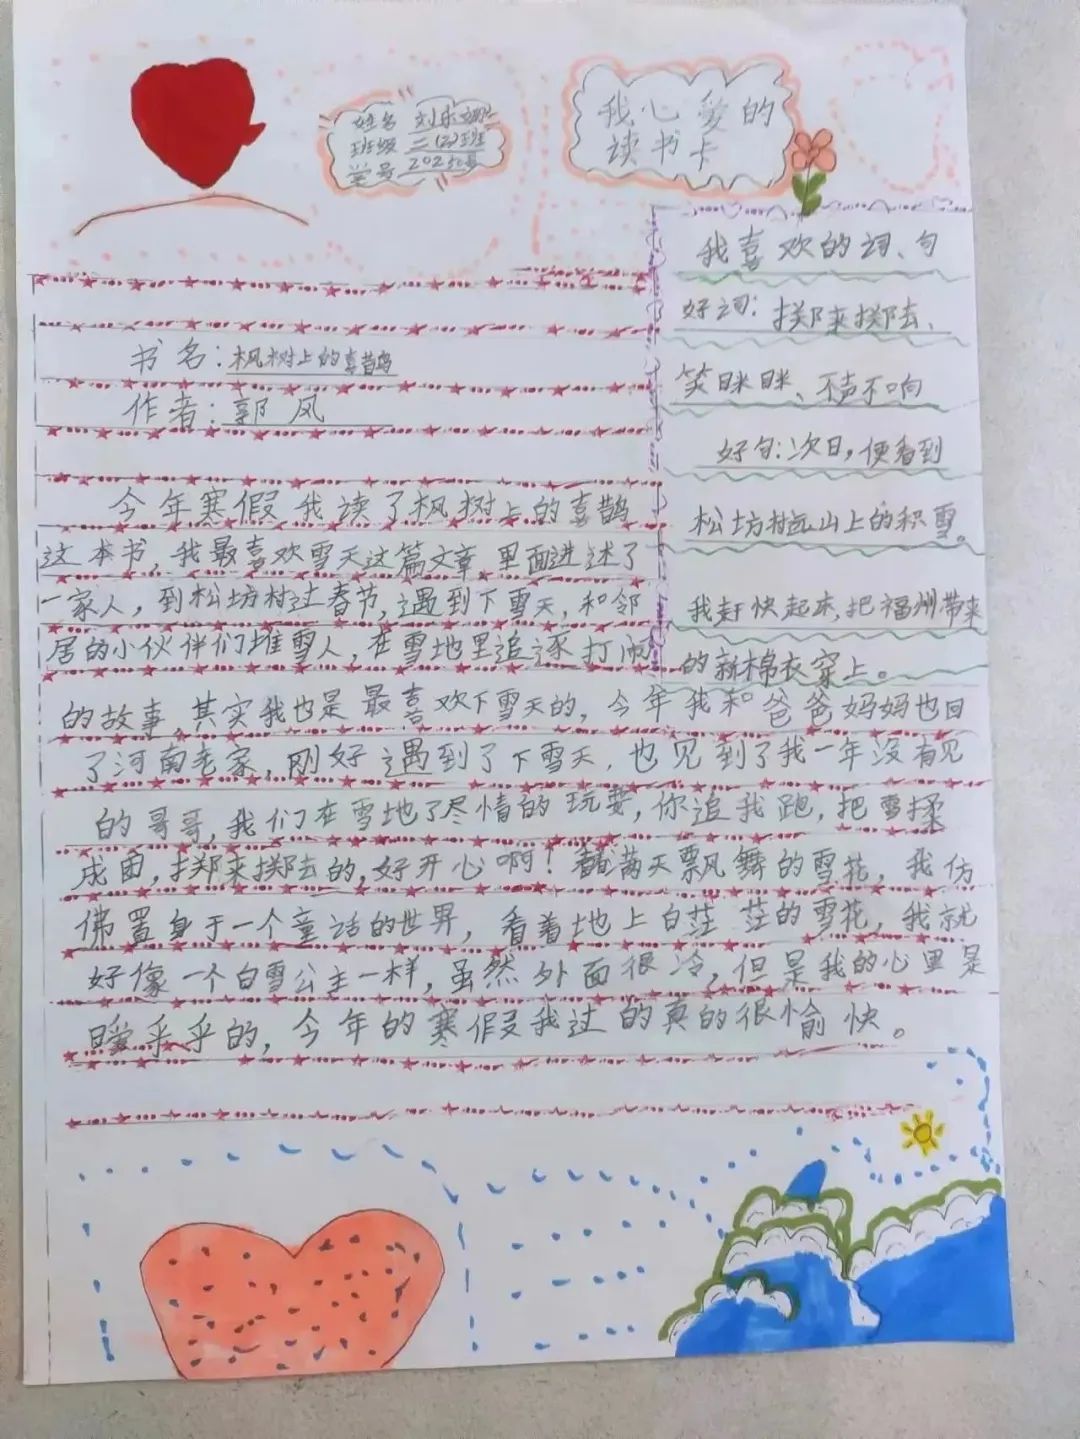 姓名 刘乐
班级 二(2)班
学号
我心爱的
读书卡
书名:枫树上的喜鹊
作者:郭风
今年寒假我读了枫树上的喜鹊
这本书,我最喜欢雪天这篇文章,里面进述了
一家人,到松坊村过春节,遇到下雪天,和邻
居的小伙伴们堆雪人,在雪地里追逐打闹
的故事,其实我也是最喜欢下雪天的,今年我和爸爸妈妈也回
了河南老家,刚好遇到了下雪天,也见到了我一年没有见
的哥哥,我们在雪地了尽情的玩耍,你追我跑,把雪揉
成团,掷来掷去的,好开心啊!看满天飘舞的雪花,我仿
佛置身于一个童话的世界,看着地上白茫茫的雪花,我就
好像一个白雪公主一样,虽然外面很冷,但是我的心里是
暖乎乎的,今年的寒假我过的真的很愉快。
我喜欢的词、句
好词:掷来掷去、
笑眯眯、不声不响
好句:次日,便看到
松坊村远山上的积雪。
我赶快起来,把福州带来
的新棉衣穿上。